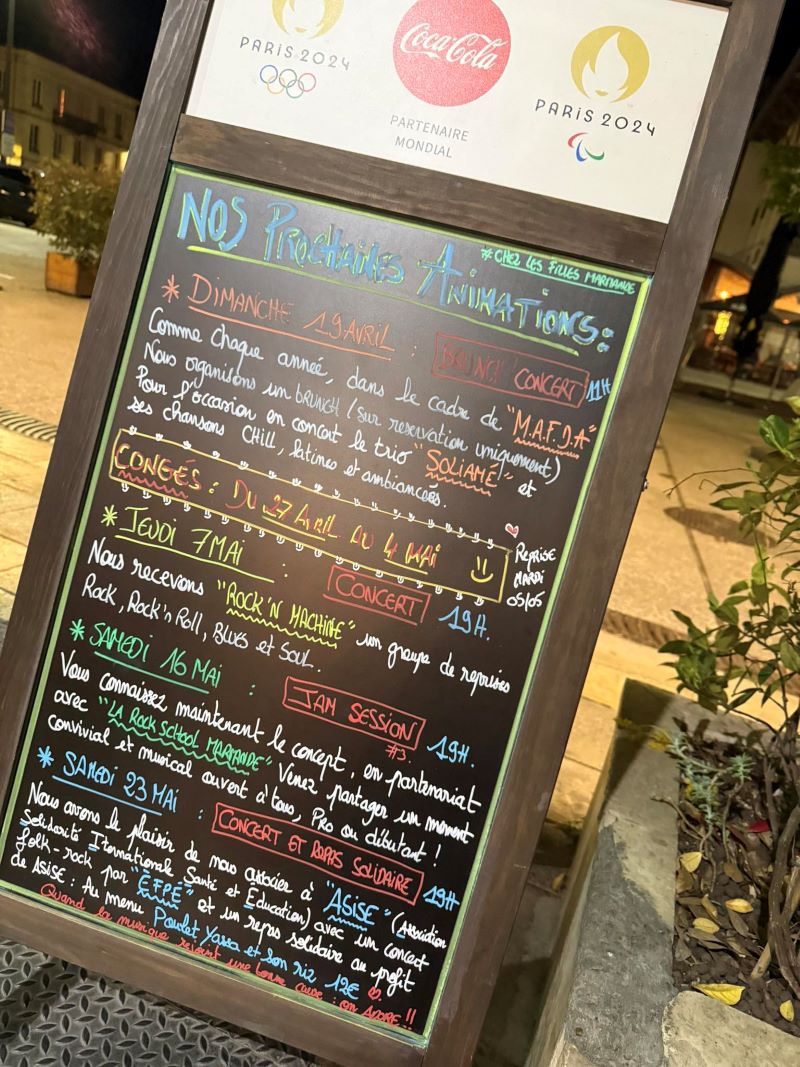 PARIS 2024
Coca-Cola
PARTENAIRE
MONDIAL
PARIS 2024
NOS PROCHAINES ANIMATIONS:
#CHEZ LES FILLES MARMANDE
* DIMANCHE 19 AVRIL : BRUNCH CONCERT 11H
Comme chaque année, dans le cadre de "M.A.F.D.A"
Nous organisons un BRUNCH (sur reservation uniquement)
Pour l'occasion en concert le trio "SOLIAMÉ" et
ses chansons CHILL, latines et ambiancées.
CONGÉS : DU 27 AVRIL AU 4 MAI
REPRISE
MARDI
05/05
* JEUDI 7 MAI : CONCERT 19H.
Nous recevons "ROCK'N MACHINE" un groupe de reprises
Rock, Rock'n Roll, BLUES et SOUL.
* SAMEDI 16 MAI : JAM SESSION 19H.
#3.
Vous connaissez maintenant le concept, en partenariat
avec "LA ROCK SCHOOL MARMANDE" Venez partager un moment
convivial et musical ouvert à tous, PRO ou débutant !
* SAMEDI 23 MAI : CONCERT ET REPAS SOLIDAIRE 19H
Nous avons le plaisir de nous associer à "ASISE" (Association
Solidarité Internationale Santé et Education) avec un concert
folk-rock par "ÉFPÉ" et un repas solidaire au profit
de ASISE : Au menu Poulet Yassa et son riz 12€
Quand la musique rejoint une bonne cause : on ADORE !!